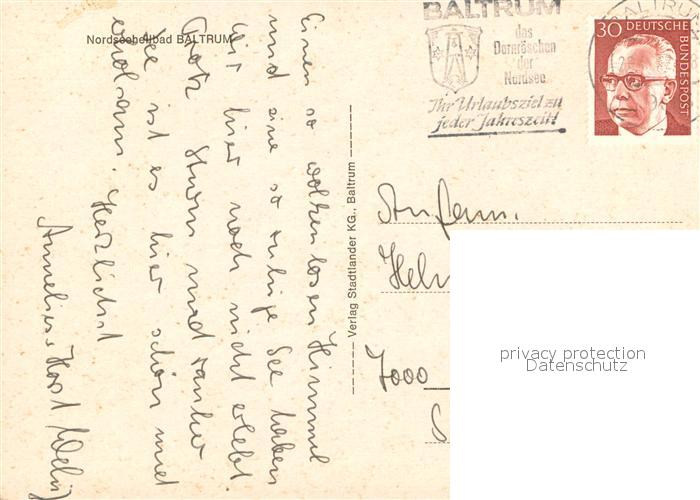 Nordseeheilbad BALTRUM
Einen so wolkenlosen Himmel
und eine so ruhige See haben
wir hier noch nicht erlebt.
Trotz Sturm und rauher
See ist es hier schön und
erholsam. Herzlichst
Annelies + Horst
Verlag Stadtlander KG., Baltrum
BALTRUM
das
Dornröschen
der
Nordsee
Ihr Urlaubsziel zu
jeder Jahreszeit!
BALTRUM
30 DEUTSCHE
BUNDESPOST
An Fam.
7000
privacy protection
Datenschutz